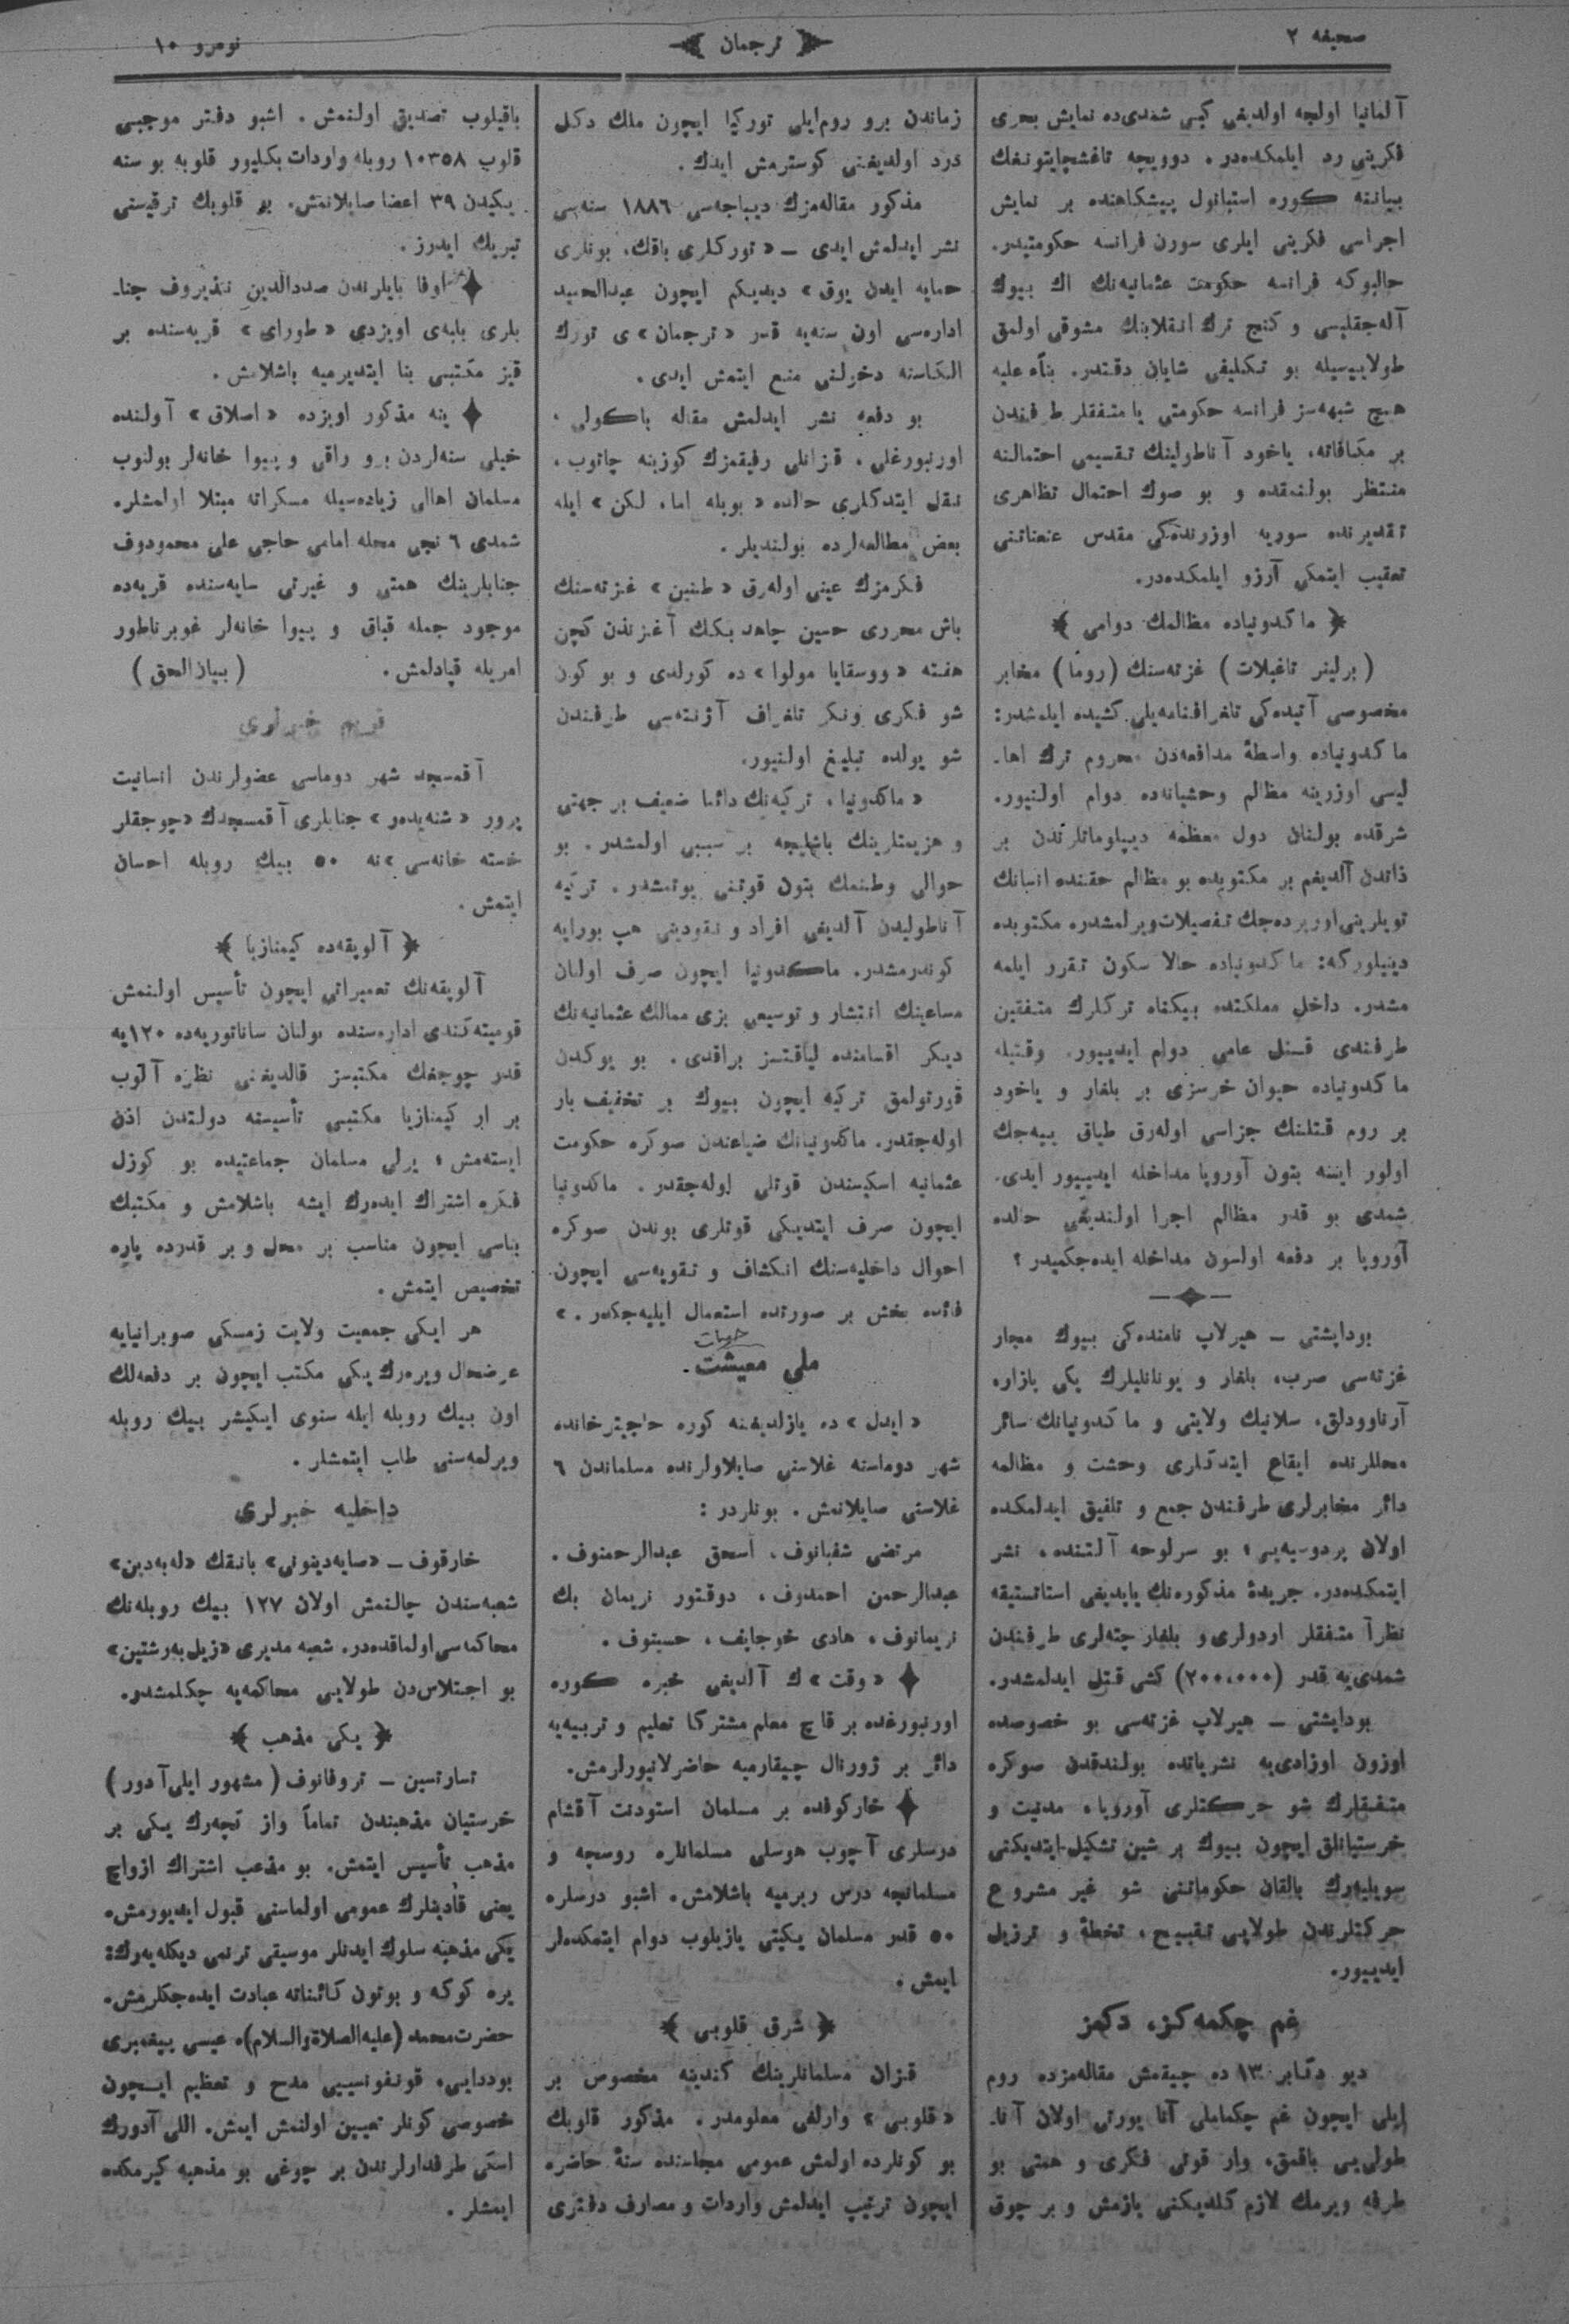 صحیفه ۲
ترجمان
نومرو ۱۰
آلمانیا اولجه اولدیغی کبی شمدی‌ده نمایش بحری
فکرینی رد ایلمکده‌در. دوویچه تاغشچایتونغك
بیاننه کوره استانبول پیشکاهنده بر نمایش
اجراسی فکرینی ایلری سورن فرانسه حکومتیدر.
حالبوکه فرانسه حکومت عثمانیه‌نك اك بیوك
آله‌جقلیسی و کنج ترك انقلابنك مشوقی اولمق
طولاییسیله بو تکلیفی شایان دقتدر. بناءً علیه
هیچ شبهه‌سز فرانسه حکومتی یا متفقلر طرفندن
بر مکافاته، یاخود آناطولینك تقسیمی احتمالنه
منتظر بولنمقده و بو صوك احتمال تظاهری
تقدیرنده سوریه اوزرنده‌کی مقدس عنعناتنی
تعقیب ایتمکی آرزو ایلمکده‌در.
﴿ ماکدونیاده مظالمك دوامی ﴾
(برلینر تاغبلات) غزته‌سنك (روما) مخابر
مخصوصی آتیده‌کی تلغرافنامه‌یی کشیده ایلمشدر:
ماکدونیاده واسطهٔ مدافعه‌دن محروم ترك اها-
لیسی اوزرینه مظالم وحشیانه‌ده دوام اولنیور.
شرقده بولنان دول معظمه دیپلوماتلرندن بر
ذاتدن آلدیغم بر مکتوبده بو مظالم حقنده انسانك
تویلرینی اورپرده‌جك تفصیلات ویرلمشدر. مکتوبده
دینیلورکه: ماکدونیاده حالا سکون تقرر ایلمه
مشدر. داخل مملکتده بیکناه ترکلرك متفقین
طرفندن قتل عامی دوام ایدییور. وقتیله
ماکدونیاده حیوان خرسزی بر بلغار و یاخود
بر روم قتلنك جزاسی اوله‌رق طیاق ییه‌جك
اولور ایسه بتون آوروپا مداخله ایدییور ایدی.
شمدی بو قدر مظالم اجرا اولندیغی حالده
آوروپا بر دفعه اولسون مداخله ایده‌جکمیدر؟
بوداپشتی – هیرلاپ نامنده‌کی بیوك مجار
غزته‌سی صرب، بلغار و یونانلیلرك یکی بازار،
آرناوودلق، سلانیك ولایتی و ماکدونیانك سائر
محللرنده ایقاع ایتدکلری وحشت و مظالمه
دائر مخابرلری طرفندن جمع و تلفیق ایدلمکده
اولان بر دوسیه‌یی، بو سرلوحه آلتنده، نشر
ایتمکده‌در. جریدهٔ مذکوره‌نك یاپدیغی استاتستیقه
نظراً متفقلر اردولری و بلغار چته‌لری طرفندن
شمدی‌یه قدر (۲۰۰،۰۰۰) کشی قتل ایدلمشدر.
بوداپشتی – هیرلاپ غزته‌سی بو خصوصده
اوزون اوزادی‌یه نشریاتده بولندقدن صوکره
متفقلرك شو حرکتلری آوروپا، مدنیت و
خرستیانلق ایچون بیوك بر شین تشکیل ایتدیکنی
سویلیه‌رك بالقان حکوماتنی شو غیر مشروع
حرکتلرندن طولایی تقبیح، تخطئه و ترزیل
ایدییور.
غم چکمه‌کز، دکمز
دیو دکابر ۱۳ ده چیقمش مقاله‌مزده روم
ایلی ایچون غم چکماملی آنا یورتی اولان آنا-
طولی‌یی باقمق، وار قوتی فکری و همتی بو
طرفه ویرمك لازم کلدیکنی یازمش و بر چوق
زماندن برو روم‌ایلی تورکیا ایچون ملك دکل
درد اولدیغنی کوسترمش ایدك.
مذکور مقاله‌مزك دیباجه‌سی ۱۸۸۶ سنه‌سی
نشر ایدلمش ایدی – «تورکلری باقك، بونلری
حمایه ایدن یوق» دیدیکم ایچون عبدالحمید
اداره‌سی اون سنه‌یه قدر «ترجمان»ی تورك
الکاسنه دخولنی منع ایتمش ایدی.
بو دفعه نشر ایدلمش مقاله باکولی،
اورنبورغلی، قزانلی رفیقمزك کوزینه چاتوب،
نقل ایتدکلری حالده «بویله اما، لکن» ایله
بعض مطالعه‌لرده بولندیلر.
فکرمزك عینی اوله‌رق «طنین» غزته‌سنك
باش محرری حسین جاهد بکك آغزندن کچن
هفته «ووسقایا مولوا» ده کورلدی و بو کون
شو فکری ونکر تلغراف آژنته‌سی طرفندن
شو یولده تبلیغ اولنیور.
«ماکدونیا، ترکیه‌نك دائما ضعیف بر جهتی
و هزیمتلرینك باشلیجه بر سببی اولمشدر. بو
حوالی وطنمك بتون قوتنی یوتمشدر. ترکیه
آناطولیدن آلدیغی افراد و نقودینی هپ بورایه
کوندرمشدر. ماکدونیا ایچون صرف اولنان
مساعینك انتشار و توسیعی بزی ممالك عثمانیه‌نك
دیکر اقسامنده لیاقتسز براقدی. بو یوکدن
قورتولمق ترکیه ایچون بیوك بر تخفیف بار
اوله‌جقدر. ماکدونیانك ضیاعندن صوکره حکومت
عثمانیه اسکیسندن قوتلی اوله‌جقدر. ماکدونیا
ایچون صرف ایتدیکی قوتلری بوندن صوکره
احوال داخلیه‌سنك انکشاف و تقویه‌سی ایچون
فائده بخش بر صورتده استعمال ایلیه‌جکدر.»
ملی معیشت
«ایدل» ده یازلدیغنه کوره حاجیترخانده
شهر دوماسنه غلاسنی صایلاولرنده مسلماندن ۶
غلاسنی صایلانمش. بونلردر:
مرتضی شفبانوف، اسحق عبدالرحمنوف.
عبدالرحمن احمدوف، دوقتور نریمان بك
نریمانوف، هادی خوجایف، حسینوف.
«وقت» ك آلدیغی خبره کوره
اورنبورغده بر قاچ معلم مشترکا تعلیم و تربیه‌یه
دائر بر ژورنال چیقارمیه حاضرلانیورلرمش.
خارکوفده بر مسلمان استودنت آقشام
درسلری آچوب هوسلی مسلمانلره روسجه و
مسلمانجه درس ویرمیه باشلامش. اشبو درسلره
۵۰ قدر مسلمان یکیتی یازیلوب دوام ایتمکده‌لر
ایمش.
﴿ شرق قلوبی ﴾
قزان مسلمانلرینك کندینه مخصوص بر
«قلوبی» وارلغی معلومدر. مذکور قلوبك
بو کونلرده اولمش عمومی مجلسنده سنهٔ حاضره
ایچون ترتیب ایدلمش واردات و مصارف دفتری
باقیلوب تصدیق اولنمش. اشبو دفتر موجبی
قلوب ۱۰۳۵۸ روبله واردات بکلیور قلوبه بو سنه
یکیدن ۳۹ اعضا صایلانمش. بو قلوبك ترقیسنی
تبریك ایدرز.
اوفا بایلرندن صدرالدین نذیروف جنا-
بلری بلبه‌ی اویزدی «طورای» قریه‌سنده بر
قیز مکتبی بنا ایتدیرمیه باشلامش.
ینه مذکور اویزده «اصلاق» آولنده
خیلی سنه‌لردن برو راقی و پیوا خانه‌لر بولنوب
مسلمان اهالی زیاده‌سیله مسکراته مبتلا اولمشلر.
شمدی ۶ نجی محله امامی حاجی علی محمودوف
جنابلرینك همتی و غیرتی سایه‌سنده قریه‌ده
موجود جمله قباق و پیوا خانه‌لر غوبرناطور
امریله قپادلمش. (بیان‌الحق)
قریم خبرلری
آقمسجد شهر دوماسی عضولرندن انسانیت
پرور «شنه‌یده‌ر» جنابلری آقمسجدك «چوجقلر
خسته خانه‌سی»نه ۵۰ بیك روبله احسان
ایتمش.
﴿ آلوپقه‌ده کیمنازیا ﴾
آلوپقه‌نك تعمیراتی ایچون تأسیس اولنمش
قومیته‌کندی اداره‌سنده بولنان ساناتوریه‌ده ۱۲۰یه
قدر چوجغك مکتبسز قالدیغنی نظره آلوب
بر ار کیمنازیا مکتبی تأسیسنه دولتدن اذن
ایسته‌مش؛ یرلی مسلمان جماعتیده بو کوزل
فکره اشتراك ایده‌رك ایشه باشلامش و مکتبك
بناسی ایچون مناسب بر محل و بر قدرده پاره
تخصیص ایتمش.
هر ایکی جمعیت ولایت زمسکی صوبرانیایه
عرضحال ویره‌رك یکی مکتب ایچون بر دفعه‌لك
اون بیك روبله ایله سنوی ایکیشر بیك روبله
ویرلمه‌سنی طلب ایتمشلر.
داخلیه خبرلری
خارقوف – «صایه‌دینونی» بانقك «له‌به‌دین»
شعبه‌سندن چالنمش اولان ۱۲۷ بیك روبله‌نك
محاکمه‌سی اولماقده‌در. شعبه مدیری «زیل‌به‌رشتین»
بو اختلاس‌دن طولایی محاکمه‌یه چکلمشدر.
﴿ یکی مذهب ﴾
تسارتسین – تروفانوف (مشهور ایلی‌آدور)
خرستیان مذهبندن تماماً واز کچه‌رك یکی بر
مذهب تأسیس ایتمش. بو مذهب اشتراك ازواج
یعنی قادینلرك عمومی اولماسنی قبول ایدیورمش.
یکی مذهبه سلوك ایدنلر موسیقی ترنمی دیکله‌یه‌رك:
یره کوکه و بوتون کائناته عبادت ایده‌جکلرمش.
حضرت محمد (علیه الصلاة والسلام)، عیسی پیغمبری
بوددایی، قونفوتسییی مدح و تعظیم ایچون
خصوصی کونلر تعیین اولنمش ایمش. ایلی آدورك
اسکی طرفدارلرندن بر چوغی بو مذهبه کیرمکده
ایمشلر.